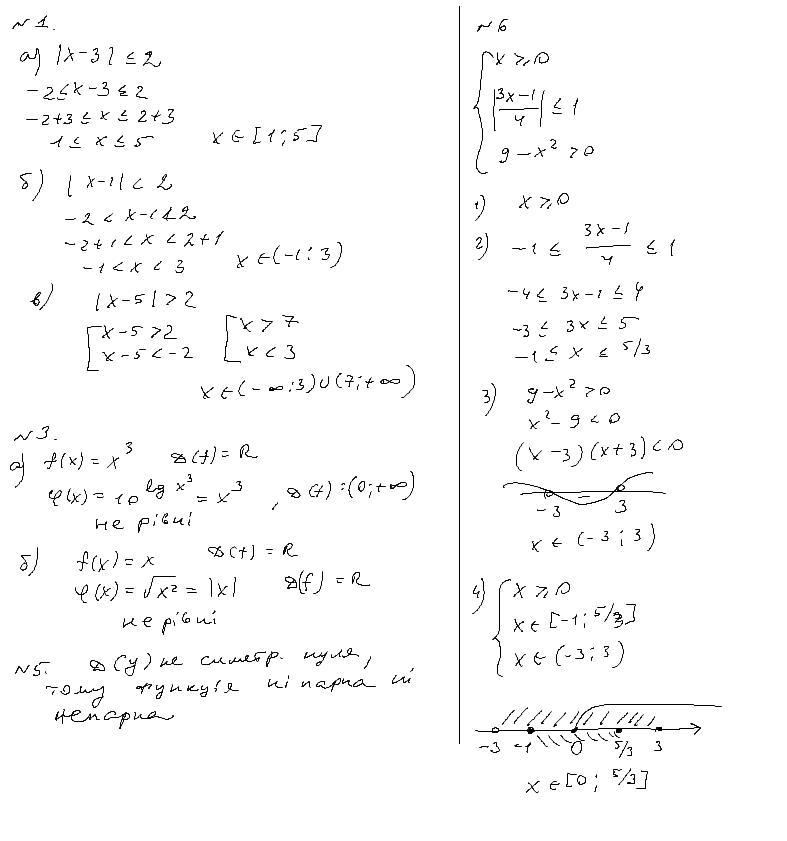 №1.
а) |x-3| ≤ 2
-2 ≤ x-3 ≤ 2
-2+3 ≤ x ≤ 2+3
1 ≤ x ≤ 5 x ∈ [1; 5]
б) |x-1| < 2
-2 < x-1 < 2
-2+1 < x < 2+1
-1 < x < 3 x ∈ (-1; 3)
в) |x-5| > 2
[ x-5 > 2 [ x > 7
x-5 < -2 x < 3
x ∈ (-∞; 3) ∪ (7; +∞)
№3.
а) f(x) = x³ D(f) = R
φ(x) = 10^(lg x³) = x³, D(f): (0; +∞)
не рівні
б) f(x) = x D(f) = R
φ(x) = √x² = |x| D(f) = R
не рівні
№5. D(y) не симетр. нуля,
тому функція ні парна ні
непарна
№6
{ x ≥ 0
|(3x-1)/4| ≤ 1
9 - x² > 0
1) x ≥ 0
2) -1 ≤ (3x-1)/4 ≤ 1
-4 ≤ 3x-1 ≤ 4
-3 ≤ 3x ≤ 5
-1 ≤ x ≤ 5/3
3) 9-x² > 0
x² - 9 < 0
(x-3)(x+3) < 0
-
-3 3
x ∈ (-3; 3)
4) { x ≥ 0
x ∈ [-1; 5/3]
x ∈ (-3; 3)
-3 -1 0 5/3 3
x ∈ [0; 5/3]